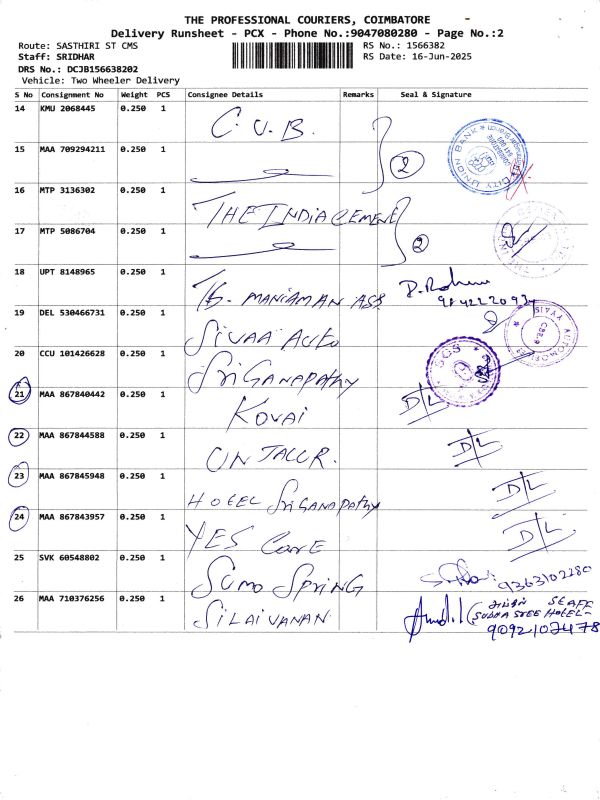 THE PROFESSIONAL COURIERS, COIMBATORE
Delivery Runsheet - PCX - Phone No.:9047080280 - Page No.:2
Route: SASTHIRI ST CMS
RS No.: 1566382
Staff: SRIDHAR
RS Date: 16-Jun-2025
DRS No.: DCJB156638202
Vehicle: Two Wheeler Delivery
S No Consignment No Weight PCS Consignee Details Remarks Seal & Signature
14 KMU 2068445 0.250 1 C.U.B.
15 MAA 709294211 0.250 1 2 CITY UNION BANK
16 MTP 3136302 0.250 1 THE INDIA CEMENT
17 MTP 5086704 0.250 1 2
18 UPT 8148965 0.250 1 MANIAMAN
19 DEL 530466731 0.250 1 SIVAA AUTO
20 CCU 101426628 0.250 1 SRI GANAPATHY SGS
21 MAA 867840442 0.250 1 KOVAI D/L
22 MAA 867844588 0.250 1 D/L
23 MAA 867845948 0.250 1 HOTEL SRI GANAPATHY D/L
24 MAA 867843957 0.250 1 YES CARE D/L
25 SVK 60548802 0.250 1 SUMO SPRING 9363102280
26 MAA 710376256 0.250 1 SILAIVANAN STAFF
SUBHA SREE HOTEL
9092102478